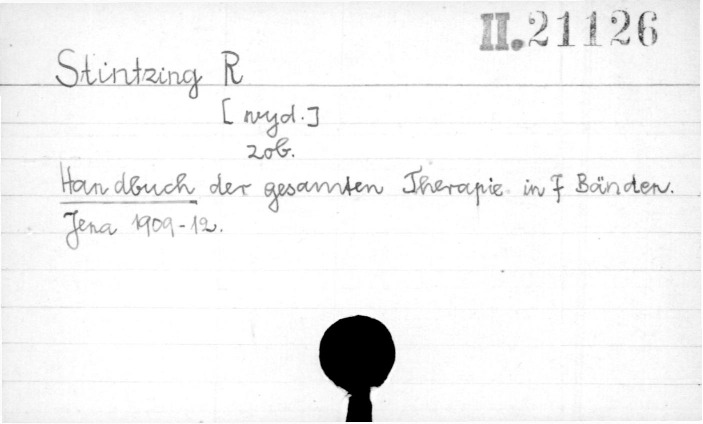 II.21126
Stintzing R
[wyd.]
zob.
Handbuch der gesamten Therapie in 7 Bänden.
Jena 1909-12.